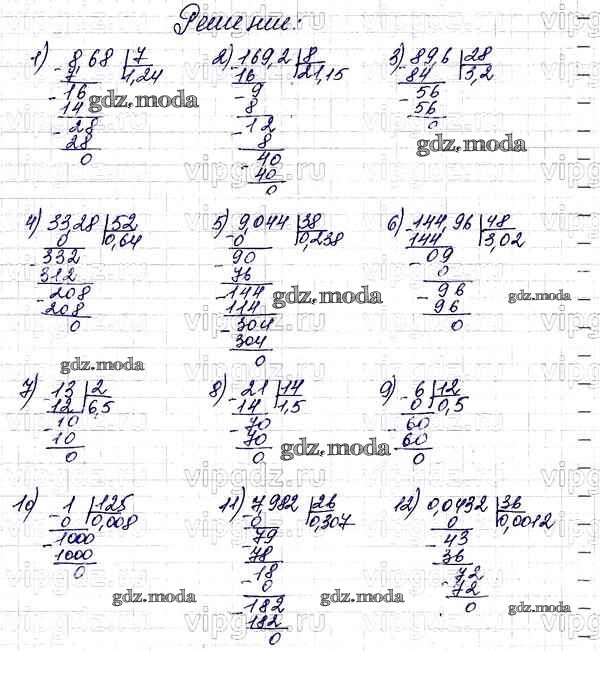 Решение:
1) 8,68 7 2) 169,2 8 3) 89,6 28
7 1,24 16 21,15 84 3,2
16 9 56
14 8 56
28 12 0
28 8
0 40
40
0
4) 33,28 52 5) 9,044 38 6) 144,96 48
0 0,64 0 0,238 144 3,02
332 90 09
312 76 0
208 144 96
208 114 96
0 304 0
304
0
7) 13 2 8) 21 14 9) 6 12
12 6,5 14 1,5 0 0,5
10 70 60
10 70 60
0 0 0
10) 1 125 11) 7,982 26 12) 0,0432 36
0 0,008 0 0,307 0 0,0012
1000 79 43
1000 78 36
0 18 72
0 72
182 0
182
0
gdz.moda
gdz.moda
gdz.moda
gdz.moda
gdz.moda
gdz.moda
gdz.moda
gdz.moda
gdz.moda
vipgdz.ru